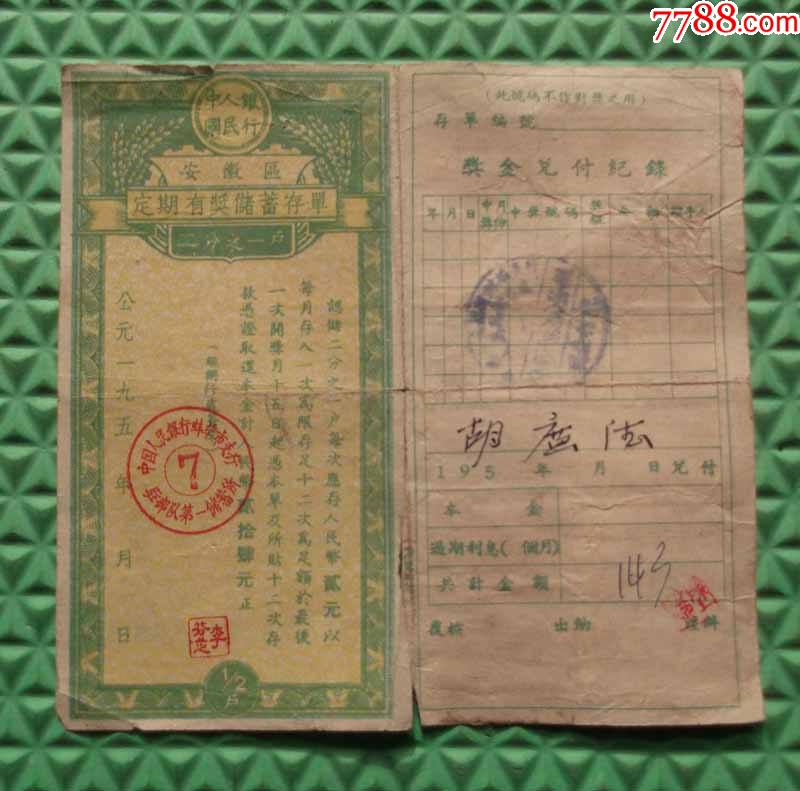 7788.com
中國人民銀行
安徽區
定期有獎儲蓄存單
二分之一戶
認儲二分之一戶每次應存人民幣貳元以
每月存入一次為限存足十二次為足額於最後
一次開獎月十五日起憑本單及所貼十二次存
款憑證取還本金計 貳拾肆元正
公元一九五 年 月 日
中国人民银行蚌埠市支行
7
第一储蓄所
李芬芝
1/2
戶
(此號碼不作對獎之用)
存單編號
獎金兌付紀錄
年 月 日 中獎月份 中獎號碼 獎級 金額 經手人
胡
195 年 月 日兌付
本金
過期利息( 個月)
共計金額
覆核 出納 經辦